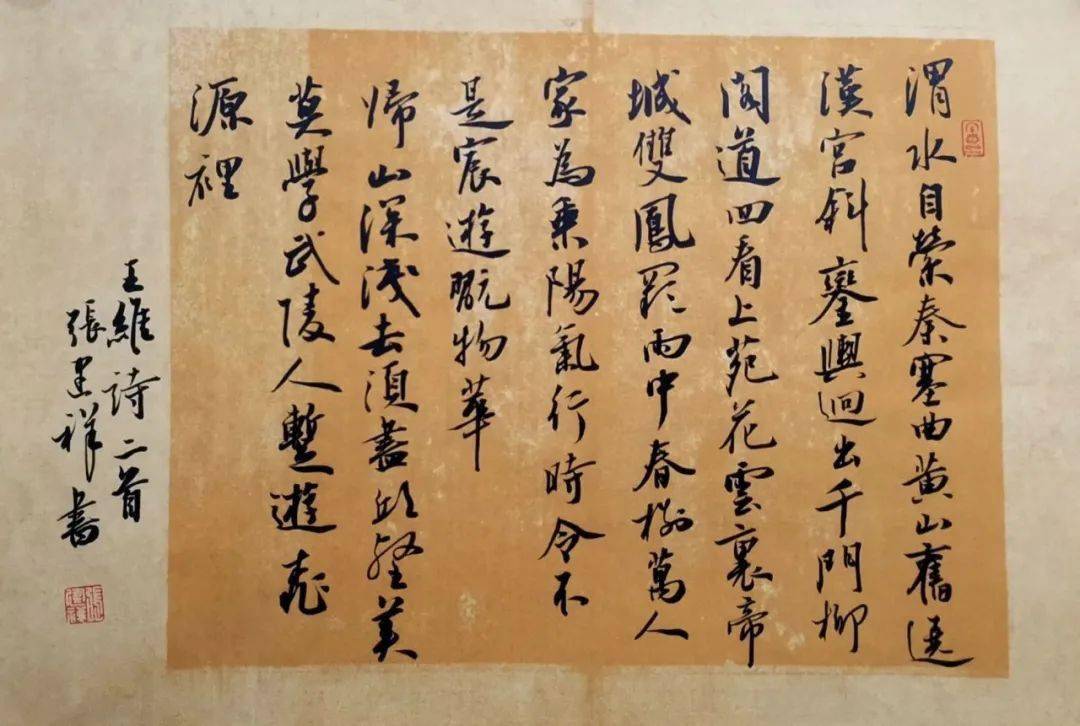 渭水自縈秦塞曲黄山舊遶
漢宮斜鑾輿迥出千門柳
閣道回看上苑花雲裏帝
城雙鳳闕雨中春樹萬人
家為乘陽氣行時令不
是宸遊翫物華
歸山深淺去須盡邱壑美
莫學武陵人暫遊桃
源裡
王維詩二首
張建祥書